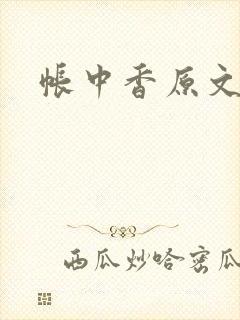 帐中香原文
西瓜炒哈密瓜